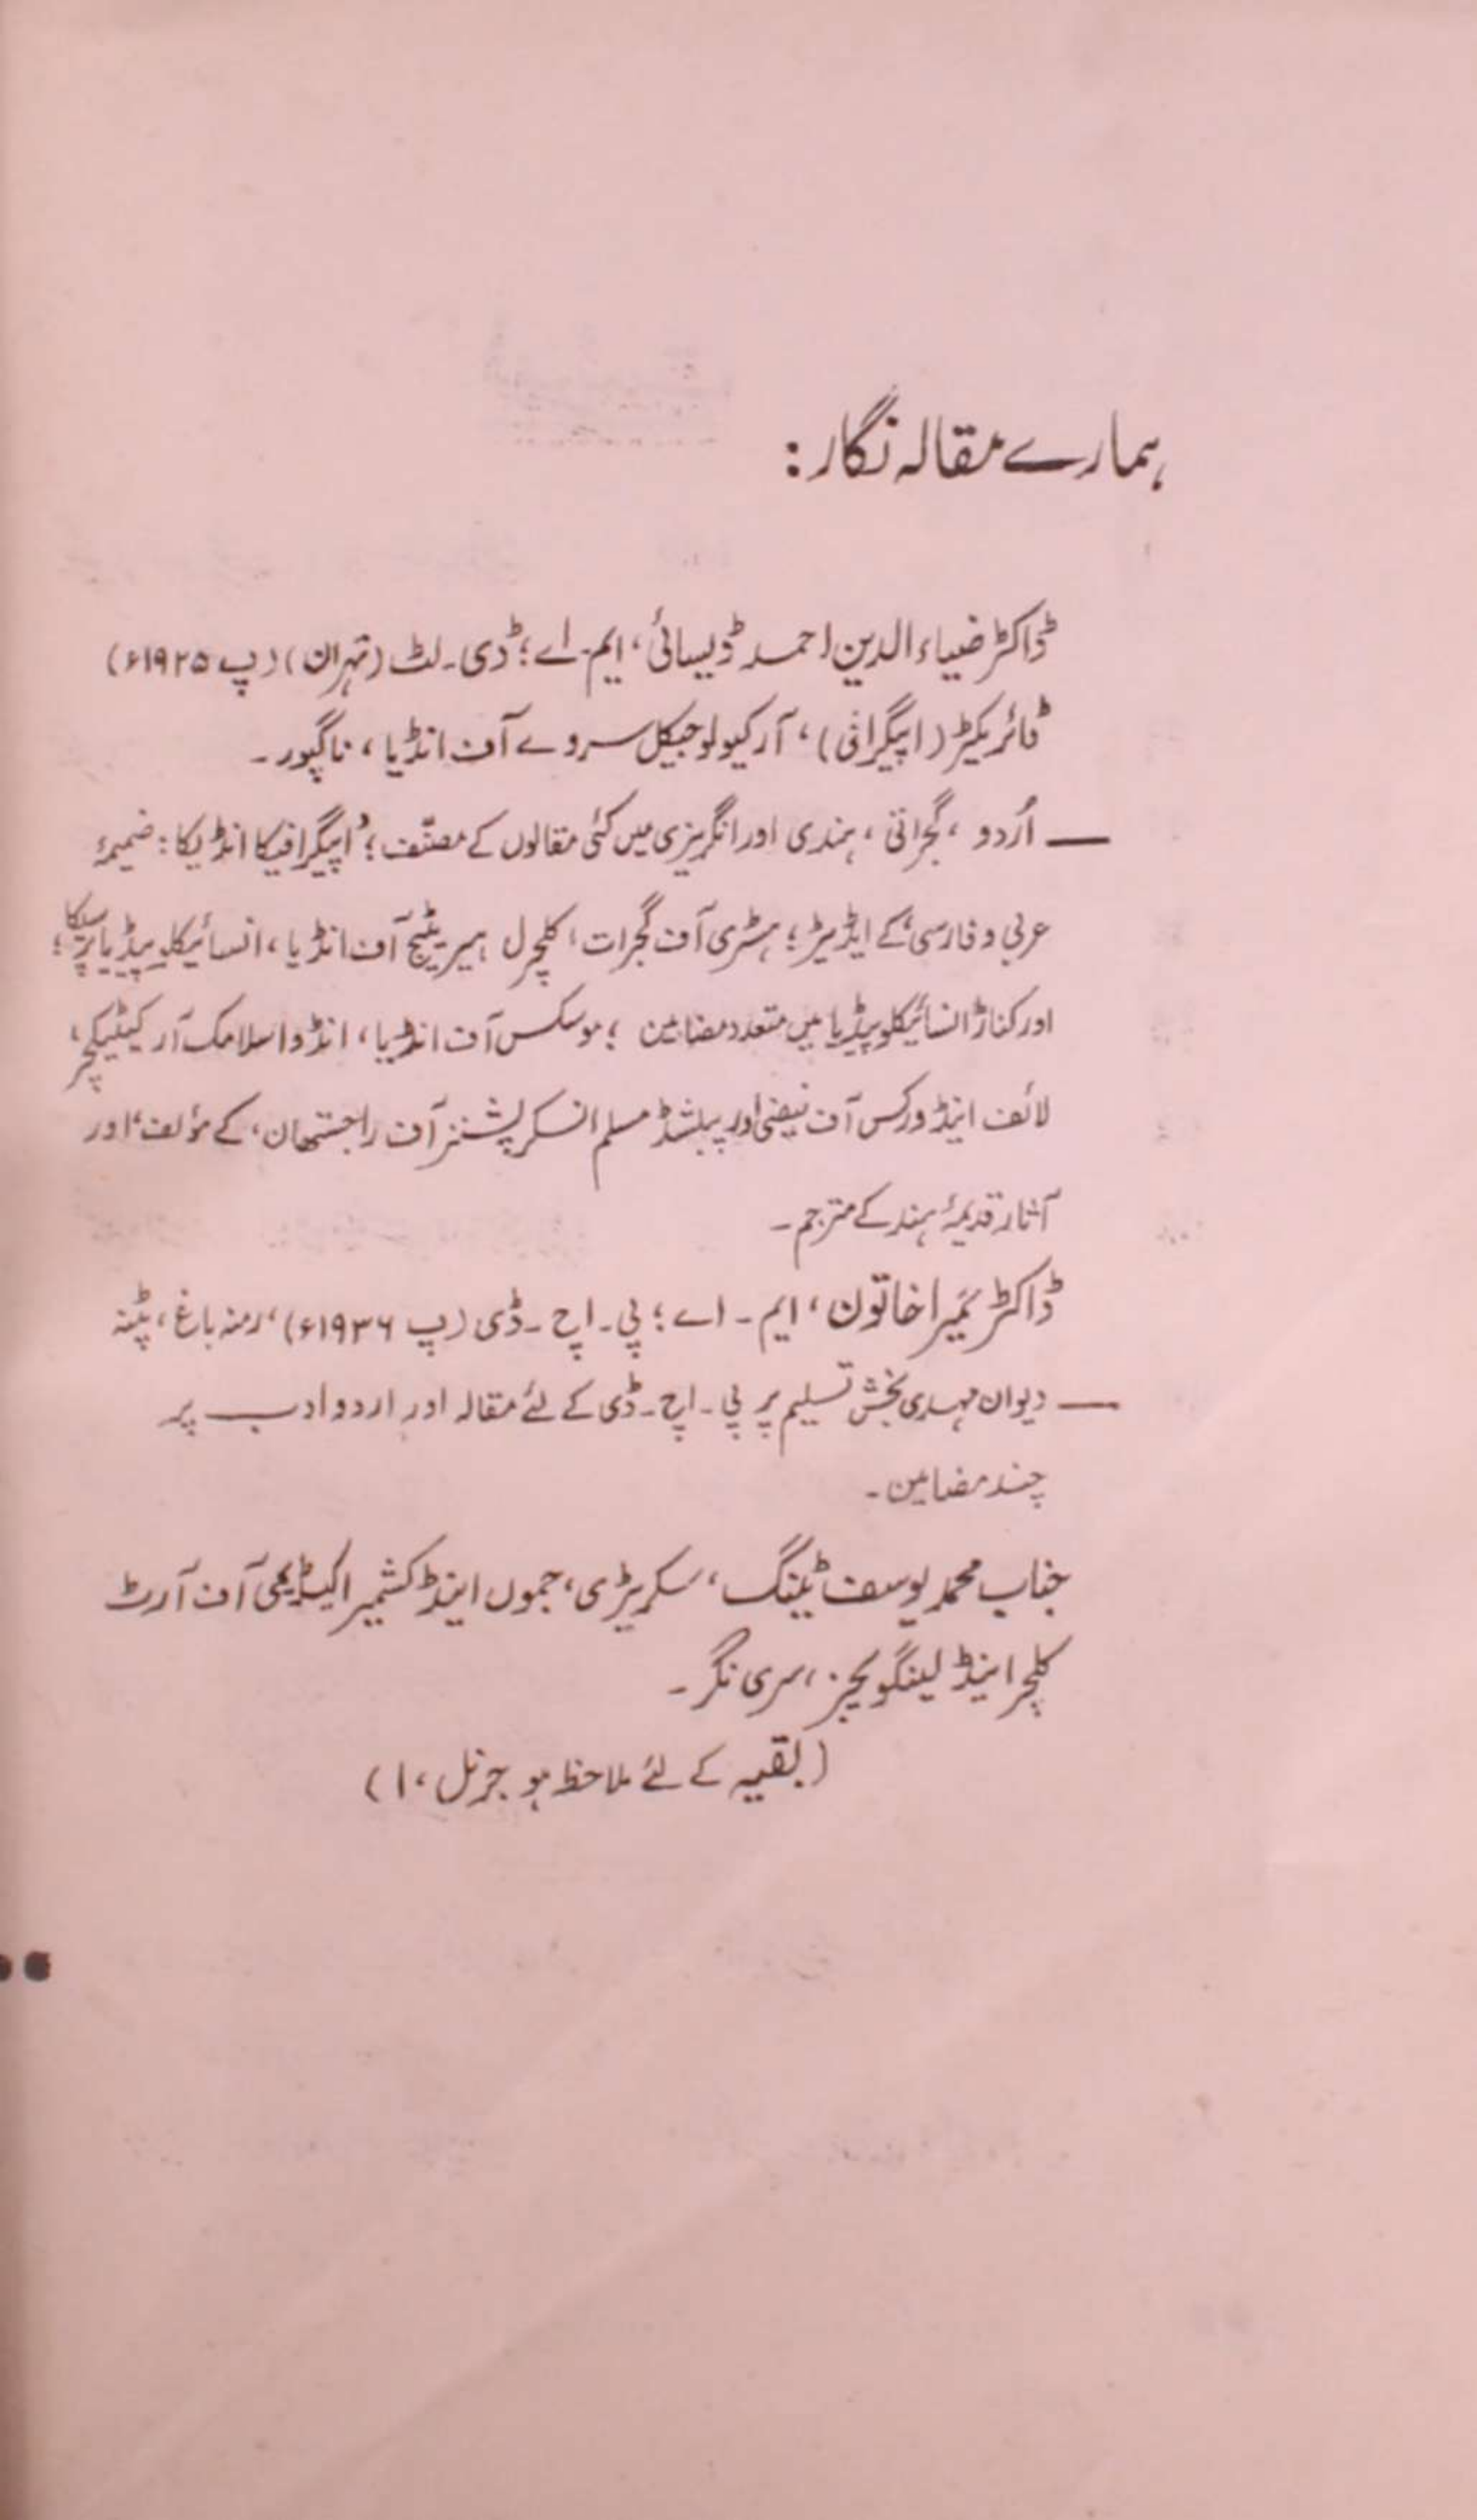 ہمارے مقالہ نگار:
ڈاکٹر ضیاء الدین احمد ڈیسائی، ایم۔ اے؛ ڈی۔ لٹ (تہران) (پ ۱۹۲۵ء)
ڈائریکٹر (اپیگرافی)، آرکیولوجیکل سروے آف انڈیا، ناگپور۔
— اُردو، گجراتی، ہندی اور انگریزی میں کئی مقالوں کے مصنّف؛ 'اپیگرافیکا انڈیکا: ضمیمۂ
عربی و فارسی' کے ایڈیٹر؛ ہسٹری آف گجرات، کلچرل ہیریٹیج آف انڈیا، انسائیکلوپیڈیا برٹینیکا؛
اور کناڑ انسائیکلوپیڈیا میں متعدد مضامین؛ موسکس آف انڈیا، انڈو اسلامک آرکیٹیکچر،
لائف اینڈ ورکس آف فیضی اور پبلشڈ مسلم انسکرپشنز آف راجستھان، کے مؤلف، اور
آثار قدیمۂ ہند کے مترجم۔
ڈاکٹر خاتون، ایم۔ اے؛ پی۔ ایچ۔ ڈی (پ ۱۹۳۶ء)، رمنہ باغ، پٹنہ
— دیوان مہدی بخش تسلیم پر پی۔ ایچ۔ ڈی کے لئے مقالہ اور اردو ادب پر
چند مضامین۔
جناب محمد یوسف ٹینگ، سکریٹری، جموں اینڈ کشمیر اکیڈیمی آف آرٹ
کلچر اینڈ لینگویجز، سری نگر۔
(بقیہ کے لئے ملاحظہ ہو جرنل، ۱)